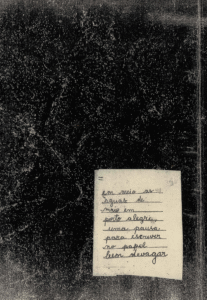 em meio as
águas de
maio em
porto alegre,
uma pausa
para escrever
no papel
bem devagar